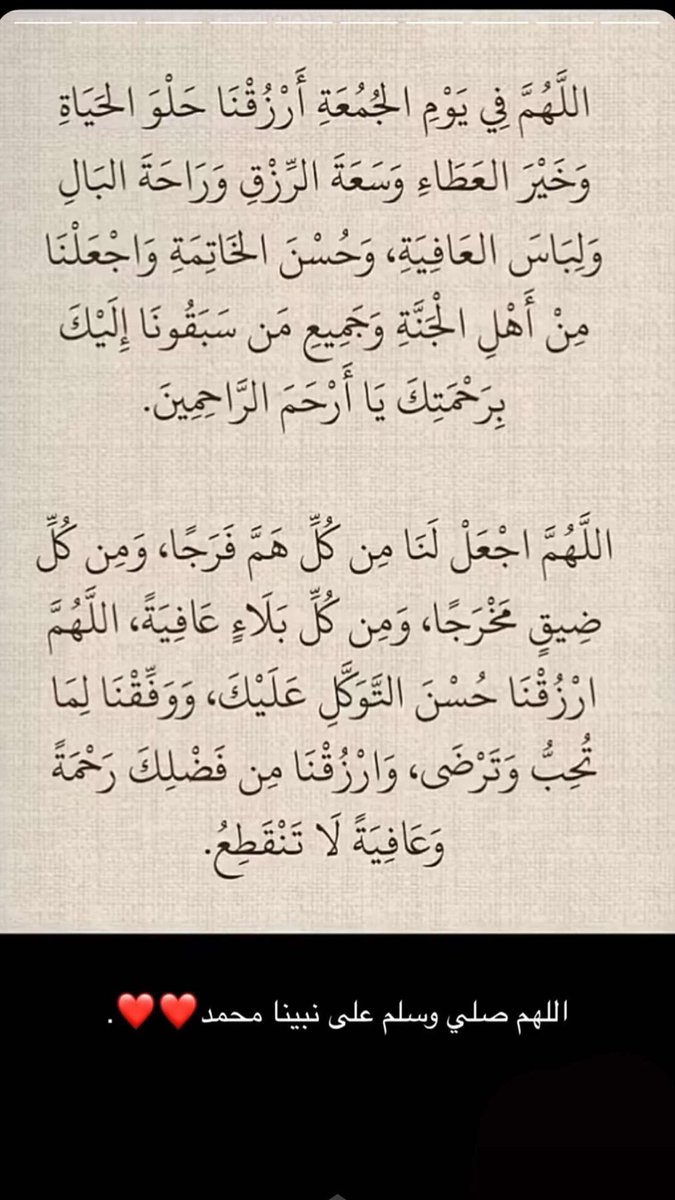 اللَّهُمَّ فِي يَوْمِ الجُمُعَةِ أَرْزُقْنَا حَلْوَ الحَيَاةِ
وَخَيْرَ العَطَاءِ وَسَعَةَ الرِّزْقِ وَرَاحَةَ البَالِ
وَلِبَاسَ العَافِيَةِ، وَحُسْنَ الخَاتِمَةِ وَاجْعَلْنَا
مِنْ أَهْلِ الْجَنَّةِ وَجَمِيعِ مَن سَبَقُونَا إِلَيْكَ
بِرَحْمَتِكَ يَا أَرْحَمَ الرَّاحِمِينَ.
اللَّهُمَّ اجْعَلْ لَنَا مِن كُلِّ هَمَّ فَرَجًا، وَمِن كُلِّ
ضِيقٍ مَخْرَجًا، وَمِن كُلِّ بَلَاءٍ عَافِيَةً، اللَّهُمَّ
ارْزُقْنَا حُسْنَ التَّوَكَّلِ عَلَيْكَ، وَوَفِّقْنَا لِمَا
تُحِبُّ وَتَرْضَى، وَارْزُقْنَا مِن فَضْلِكَ رَحْمَةً
وَعَافِيَةً لَا تَنْقَطِعُ.
اللهم صلي وسلم على نبينا محمد❤️❤️.